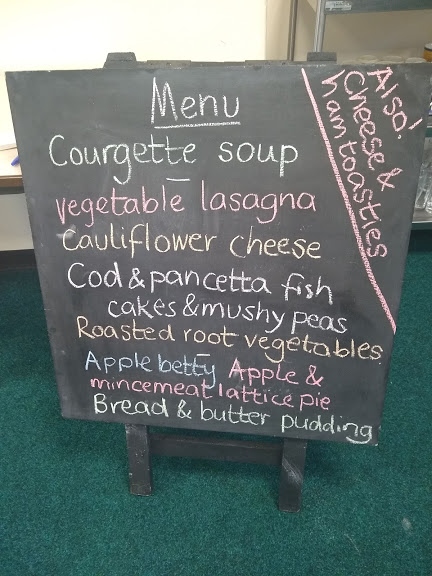 Menu
Courgette soup
vegetable lasagna
Cauliflower cheese
Cod & pancetta fish
cakes & mushy peas
Roasted root vegetables
Apple betty Apple &
mincemeat lattice pie
Bread & butter pudding
Also!
Cheese &
ham toasties